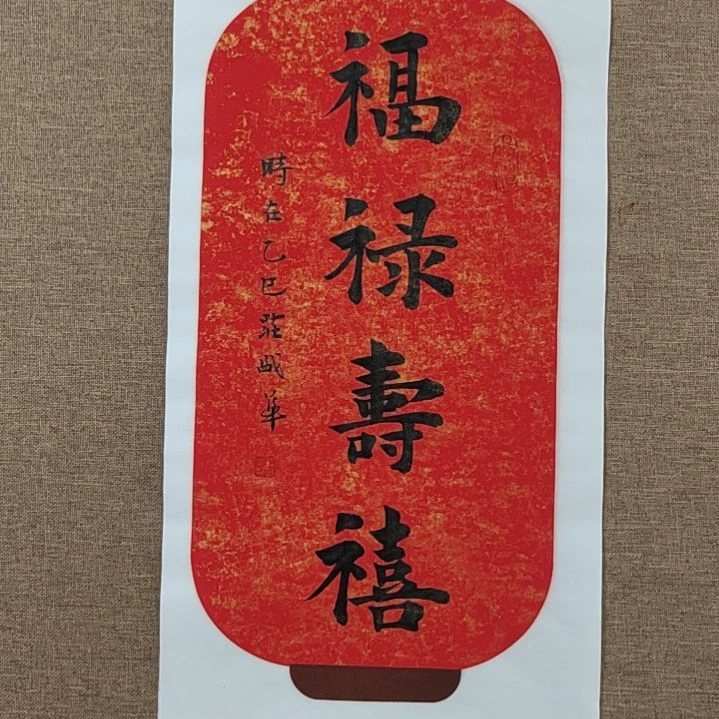 福禄壽禧
時在乙巳莊